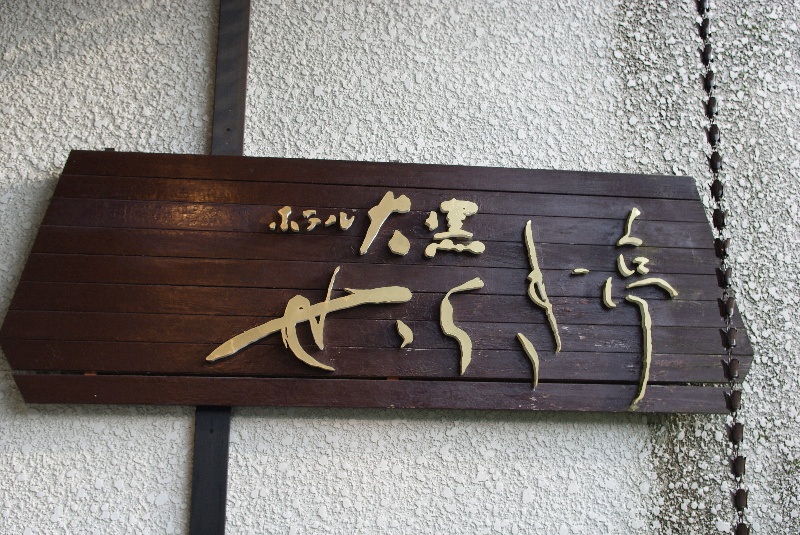 ホテル大黒
せゝらぎ亭